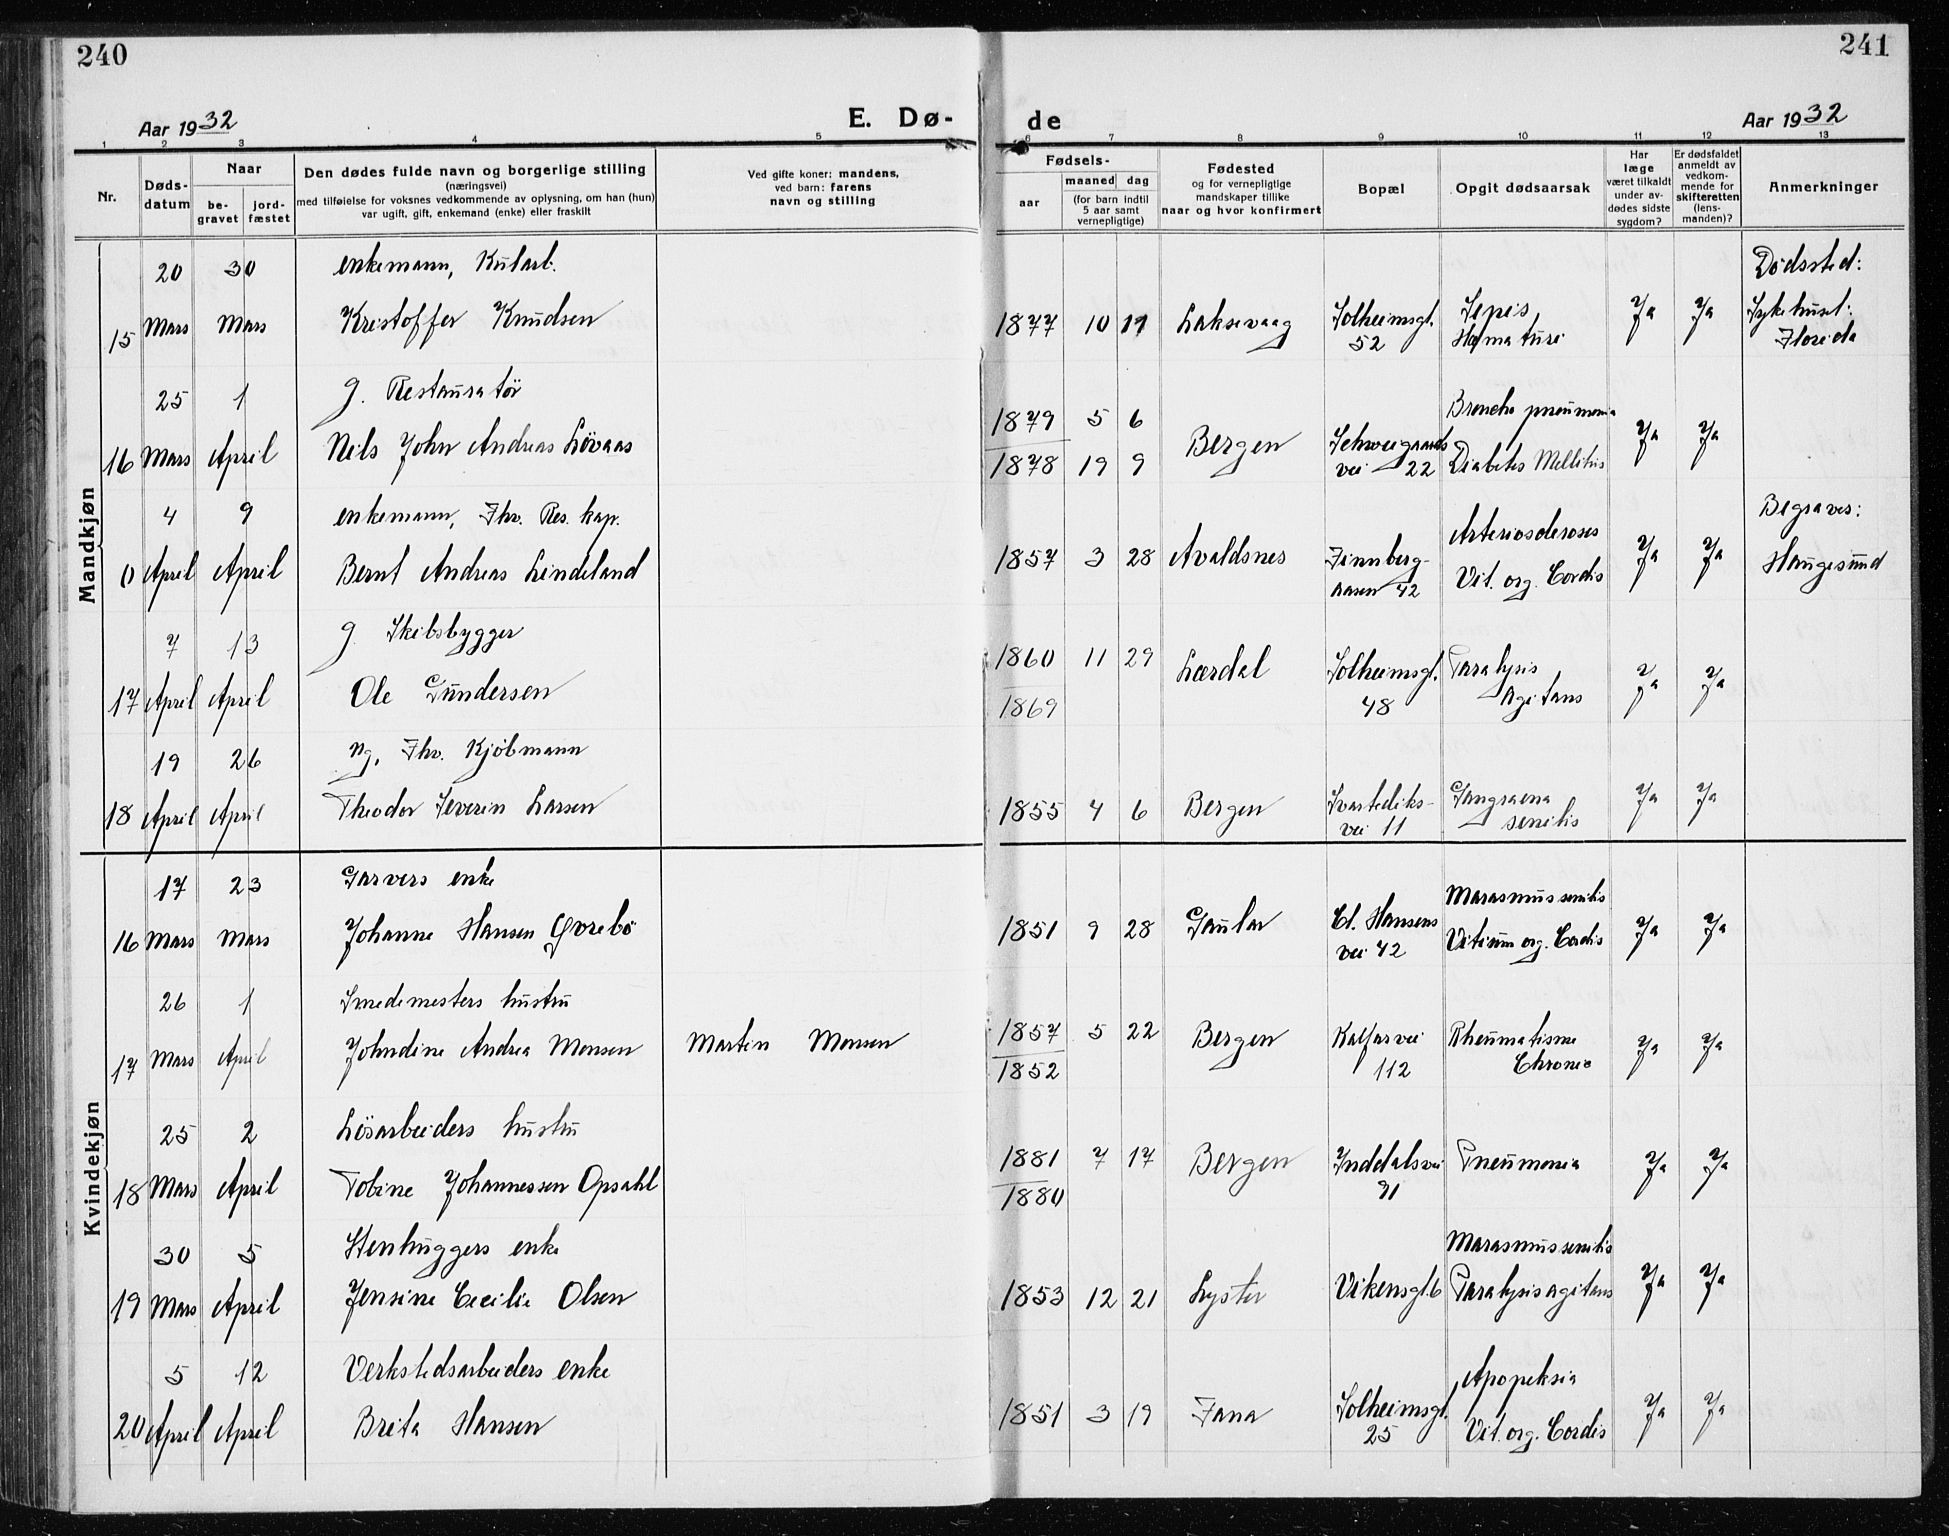 240
241
Aar 1932
E. Dø-
de
Aar 1932
1 2 3 4 5 6 7 8 9 10 11 12 13
Nr.
Døds-
datum
Naar
be-
gravet
jord-
fæstet
Den dødes fulde navn og borgerlige stilling
(næringsvei)
med tilføielse for voksnes vedkommende av oplysning, om han (hun)
var ugift, gift, enkemand (enke) eller fraskilt
Ved gifte koner: mandens,
ved barn: farens
navn og stilling
Fødsels-
aar
maaned dag
(for barn indtil
5 aar samt
vernepligtige)
Fødested
og for vernepligtige
mandskaper tillike
naar og hvor konfirmert
Bopæl
Opgit dødsaarsak
Har
læge
været tilkaldt
under av-
dødes sidste
sygdom?
Er dødsfaldet
anmeldt av
vedkom-
mende for
skifteretten
(lens-
manden)?
Anmerkninger
Mandkjøn
20 30 enkemann, Kularb. Dødssted:
15 Mars Mars Kristoffer Knudsen 1877 10 11 Laksevaag Solheimsgt. Sepis Ja Ja Sykehuset:
52 Hæmaturi Florida
25 1 g. Restauratør
1879 5 6 Broncho pneumonia
16 Mars April Nils John Andreas Lövaas Bergen Schweigaards Ja Ja
1878 19 9 vei 22 Diabetes Mellitus
4 9 enkemann, Fhv. Res. kap. Begraves:
Arteriosclerosis
0 April April Bernt Andreas Lindeland 1857 3 28 Avaldsnes Finnberg- Ja Ja Haugesund
aasen 42 Vit. org. Cordis
7 13 g. Skibsbygger
1860 11 29 Lærdal Solheimsgt. Paralysis Ja Ja
17 April April Ole Gundersen
1869 48 Agitans
19 26 ug. Fhv. Kjøbmann
18 April April Theodor Severin Larsen 1855 4 6 Bergen Svartediks- Gangraena Ja Ja
vei 11 senilis
Kvindekjøn
17 23 Garvers enke
Marasmus senilis
16 Mars Mars Johanne Hansen Øvrebö 1851 9 28 Gaular Cl. Hansens Ja Ja
vei 42 Vitium org. Cordis
26 1 Smedemesters hustru
17 Mars April Johndine Andrea Monsen Martin Monsen 1857 5 22 Bergen Kalfarvei Rheumatisme Ja Ja
1852 112 Chronic
25 2 Lösarbeiders hustru
18 Mars April Tobine Johannessen Opsahl 1881 7 17 Bergen Inddalsvei Pneumonia Ja Ja
1880 91
30 5 Stenhuggers enke
Marasmus senilis
19 Mars April Jensine Cecilie Olsen 1853 12 21 Lyster Vikensgt. 6 Paralysis agitans Ja Ja
5 12 Verkstedsarbeiders enke
Apopleksia
20 April April Brita Hansen 1851 3 19 Fana Solheimsgt. Ja Ja
25 Vit. org. Cordis